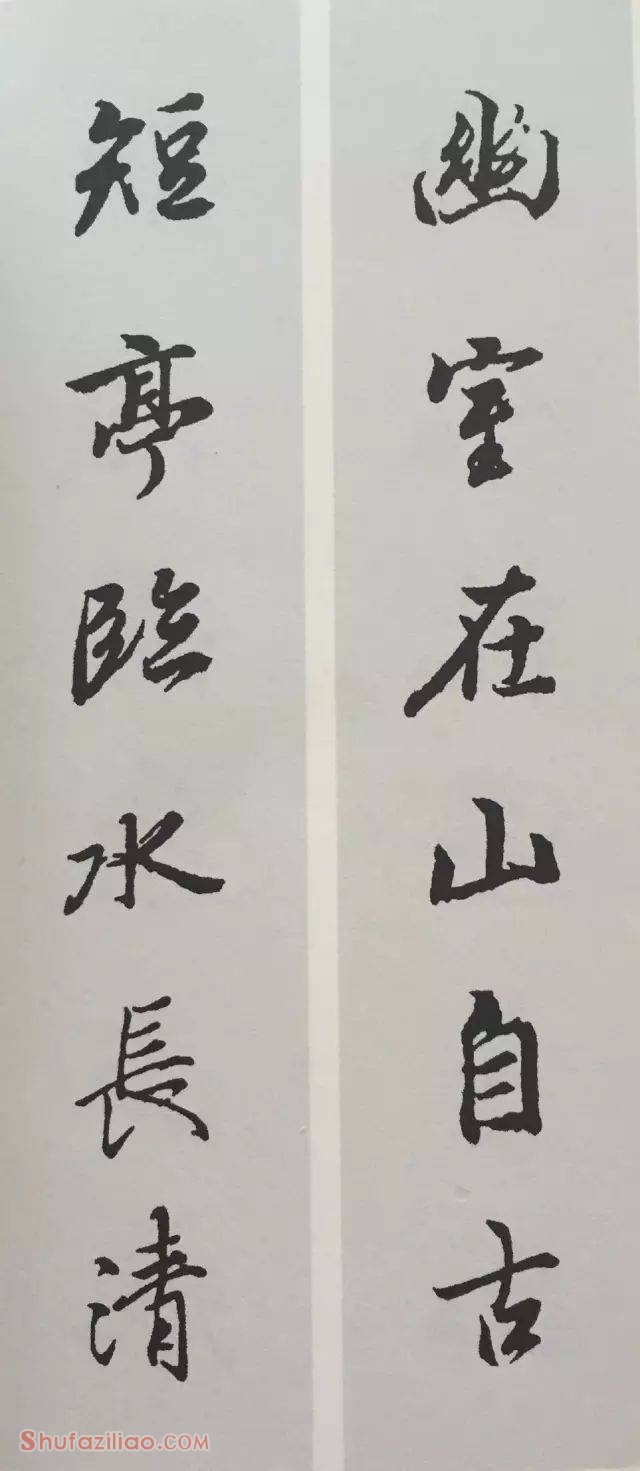 幽室在山自古
短亭臨水長清
Shufaziliao.COM